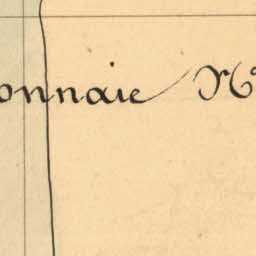 onnaie N°